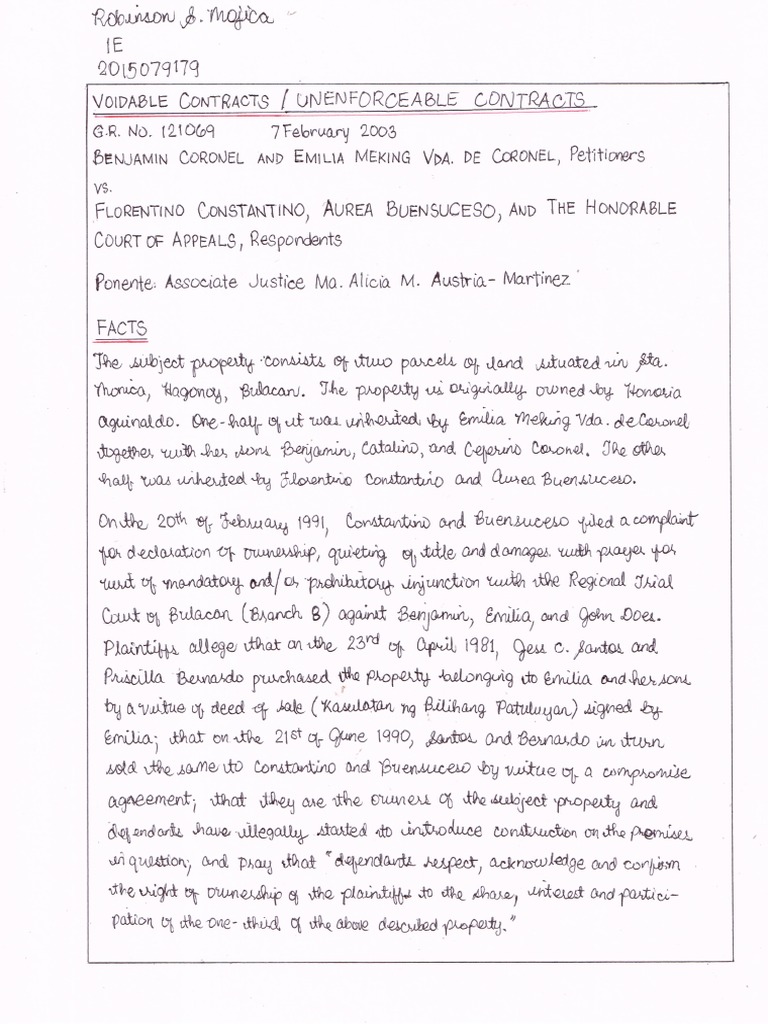 Robinson S. Mojica
1E
2015079179
VOIDABLE CONTRACTS / UNENFORCEABLE CONTRACTS
G.R. No. 121069 7 February 2003
BENJAMIN CORONEL AND EMILIA MEKING VDA. DE CORONEL, Petitioners
vs.
FLORENTINO CONSTANTINO, AUREA BUENSUCESO, AND THE HONORABLE
COURT OF APPEALS, Respondents
Ponente: Associate Justice Ma. Alicia M. Austria-Martinez
FACTS
The subject property consists of two parcels of land situated in Sta.
Monica, Hagonoy, Bulacan. The property is originally owned by Honoria
Aguinaldo. One-half of it was inherited by Emilia Meking Vda. de Coronel
together with her sons Benjamin, Catalino, and Ceferino Coronel. The other
half was inherited by Florentino Constantino and Aurea Buensuceso.
On the 20th of February 1991, Constantino and Buensuceso filed a complaint
for declaration of ownership, quieting of title and damages with prayer for
writ of mandatory and/or prohibitory injunction with the Regional Trial
Court of Bulacan (Branch 8) against Benjamin, Emilia, and John Does.
Plaintiffs allege that on the 23rd of April 1981, Jess C. Santos and
Priscilla Bernardo purchased the property belonging to Emilia and her sons
by a virtue of deed of sale (Kasulatan ng Bilihang Patuluyan) signed by
Emilia; that on the 21st of June 1990, Santos and Bernardo in turn
sold the same to Constantino and Buensuceso by virtue of a compromise
agreement; that they are the owners of the subject property and
defendants have illegally started to introduce construction on the premises
in question; and pray that "defendants respect, acknowledge and confirm
the right of ownership of the plaintiffs to the share, interest and partici-
pation of the one-third of the above described property."